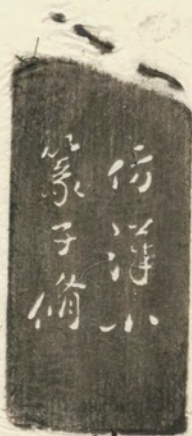 仿漢小
篆子脩